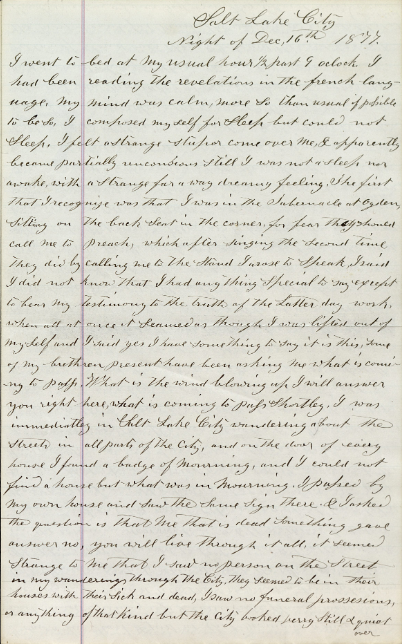 Salt Lake City
Night of Dec, 16th 1877.
I went to bed at my usual hour ½ past 9 oclock I
had been reading the revelations in the french lang-
uage, My mind was calm, more so than usual if possible
to be so, I composed myself for sleep but could not
sleep, I felt a strange stupor come over me, & apparently
became partially unconsious still I was not a sleep nor
awake, with a strange far a way dreamy feeling, The first
that I recognize was that I was in the Tabernacle at Ogden,
sitting on the back seat in the corner, for fear they should
call me to preach, which after singing the second time
they did by calling me to the Stand I arose to speak, I said
I did not know that I had any thing special to say except
to bear my testimony to the truth of the Latter day work,
when all at once it seamed as though I was lifted out of
myself and I said yes I have something to say it is this, some
of my brethren present have been asking me what is comi-
ng to pass, What is the wind blowing up, I will answer
you right here, what is coming to pass shortley, I was
immediatley in Salt Lake City wandering about the
Streets in all parts of the City, and on the door of evary
house I found a badge of Mourning, and I could not
find a house but what was in Mourning, I passed by
my own house and saw the same sign there, & I asked
the question is that Me that is dead something gave
answer no, you will live through it all, it seemed
strange to Me that I saw no person on the Street
in my wandering, through the City, they seemed to be in their
houses with their Sick and dead, I saw no funeral prossesions,
or anything of that kind but the City looked verry still & quiet
over